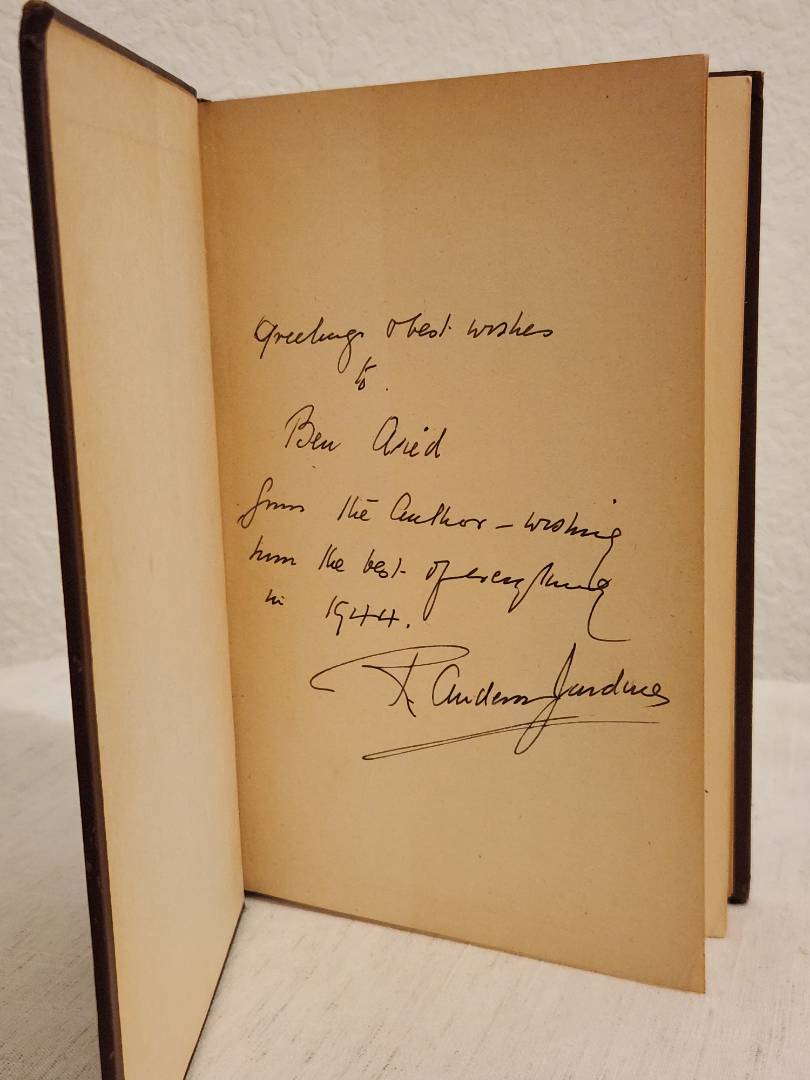 Greetings & best wishes
to
Ben
from the Author – wishing
him the best of everything
in 1944.
R. Anderson Jardine